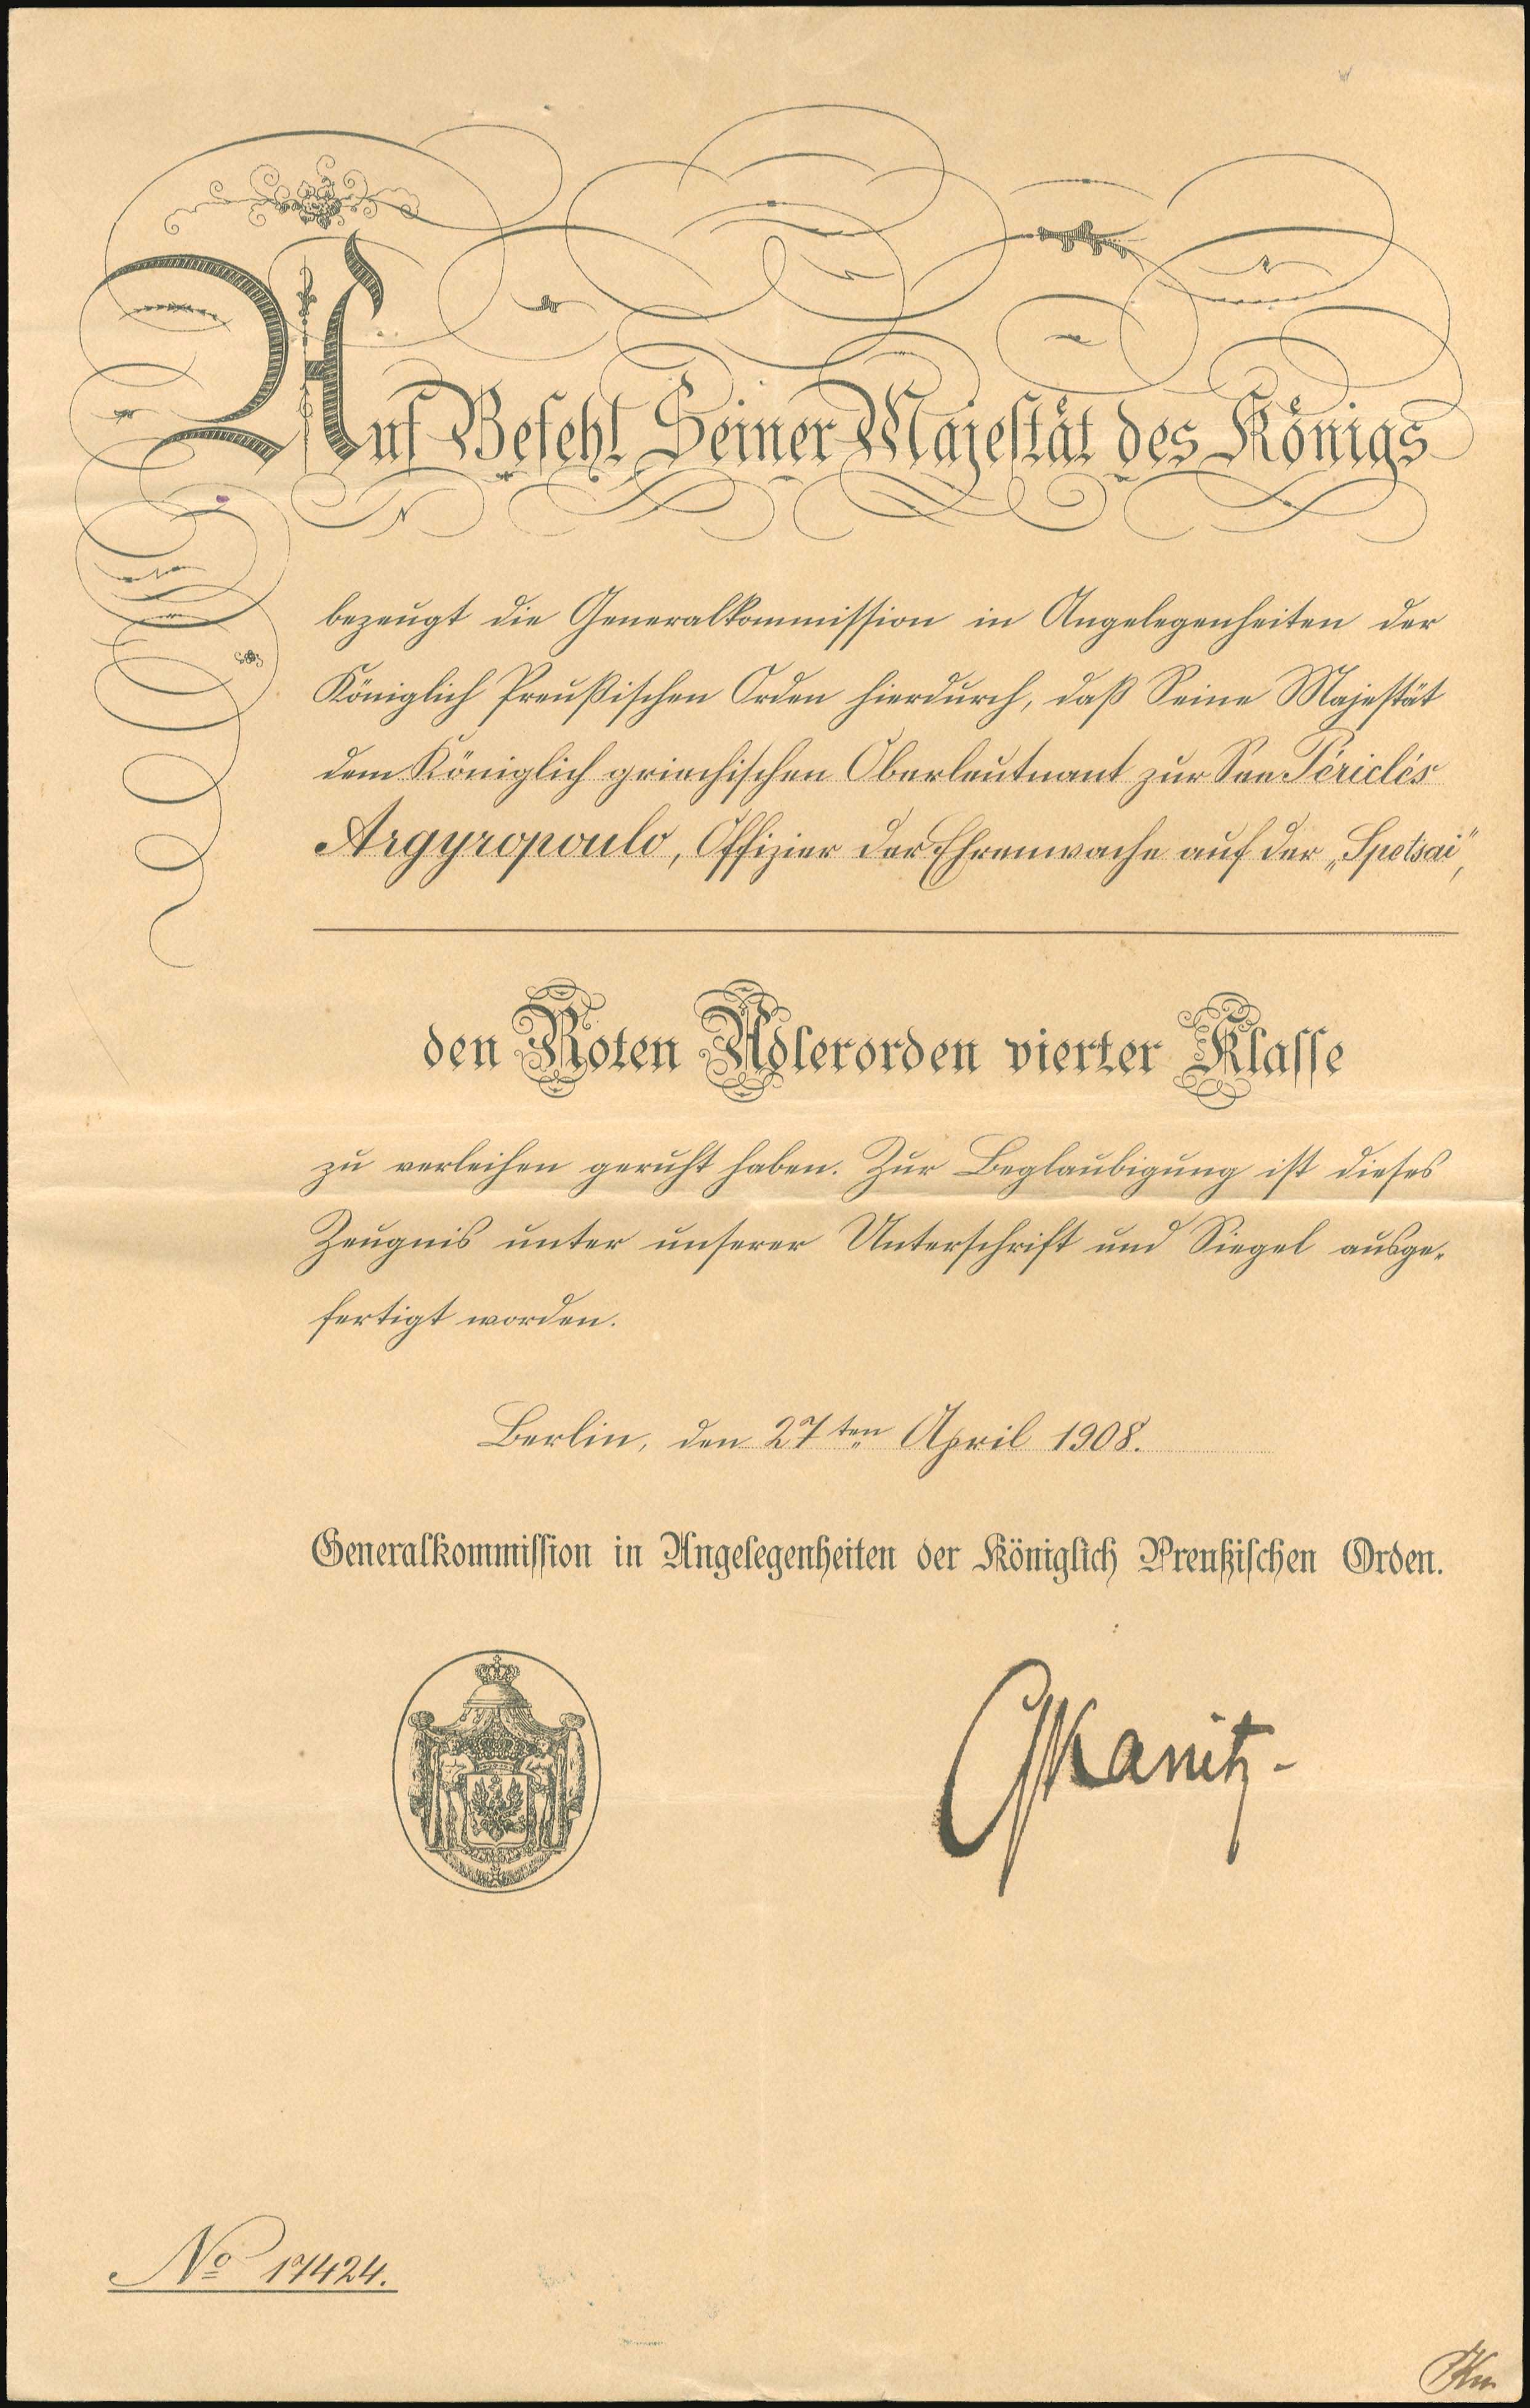 Auf Befehl Seiner Majestät des Königs
bezeugt die Generalkommission in Angelegenheiten der
Königlich Preußischen Orden hierdurch, daß Seine Majestät
dem Königlich griechischen Oberleutnant zur See Périclès
Argyropoulo, Offizier der Ehrenwache auf der „Spetsai",
den Roten Adlerorden vierter Klasse
zu verleihen geruht haben. Zur Beglaubigung ist dieses
Zeugnis unter unserer Unterschrift und Siegel ausge-
fertigt worden.
Berlin, den 27ten April 1908.
Generalkommission in Angelegenheiten der Königlich Preußischen Orden.
Kanitz
No 17424.